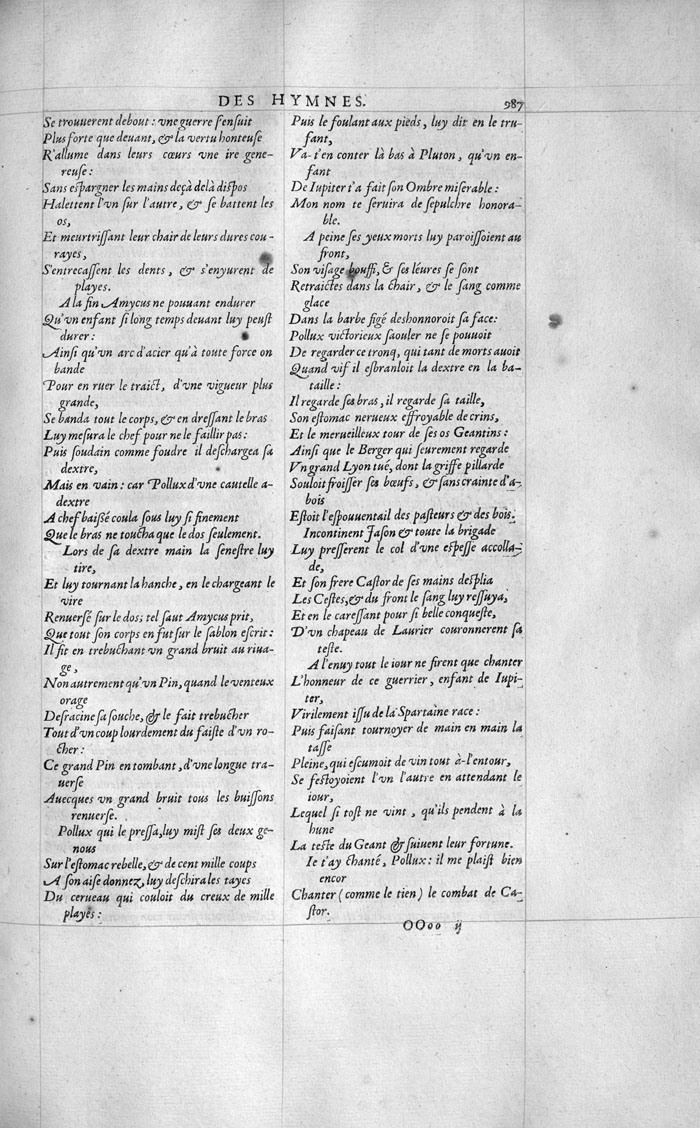 DES HYMNES. 987
Se trouuerent debout : vne guerre s'ensuit
Plus forte que deuant, & la vertu honteuse
R'allume dans leurs cœurs vne ire gene-
reuse :
Sans espargner les mains deçà delà dispos
Halettent l'vn sur l'autre, & se battent les
os,
Et meurtrissant leur chair de leurs dures cou-
rayes,
S'entrecassent les dents, & s'enyurent de
playes.
A la fin Amycus ne pouuant endurer
Qu'vn enfant si long temps deuant luy peust
durer :
Ainsi qu'vn arc d'acier qu'à toute force on
bande
Pour en ruer le traict, d'vne vigueur plus
grande,
Se banda tout le corps, & en dressant le bras
Luy mesura le chef pour ne le faillir pas :
Puis soudain comme foudre il deschargea sa
dextre,
Mais en vain : car Pollux d'vne cautelle a-
dextre
A chef baissé coula sous luy si finement
Que le bras ne toucha que le dos seulement.
Lors de sa dextre main la senestre luy
tire,
Et luy tournant la hanche, en le chargeant le
vire
Renuersé sur le dos; tel saut Amycus prit,
Que tout son corps en fut sur le sablon escrit :
Il fit en trebuchant vn grand bruit au riua-
ge,
Non autrement qu'vn Pin, quand le venteux
orage
Desracine sa souche, & le fait trebucher
Tout d'vn coup lourdement du faiste d'vn ro-
cher :
Ce grand Pin en tombant, d'vne longue tra-
uerse
Auecques vn grand bruit tous les buissons
renuerse.
Pollux qui le pressa, luy mist ses deux ge-
nous
Sur l'estomac rebelle, & de cent mille coups
A son aise donnez, luy deschira les tayes
Du cerueau qui couloit du creux de mille
playes :
Puis le foulant aux pieds, luy dit en le tru-
fant,
Va-t'en conter là bas à Pluton, qu'vn en-
fant
De Iupiter t'a fait son Ombre miserable :
Mon nom te seruira de sepulchre honora-
ble.
A peine ses yeux morts luy paroissoient au
front,
Son visage bouffi, & ses léures se sont
Retraictes dans la chair, & le sang comme
glace
Dans la barbe figé deshonnoroit sa face :
Pollux victorieux saouler ne se pouuoit
De regarder ce tronq, qui tant de morts auoit
Quand vif il esbranloit la dextre en la ba-
taille :
Il regarde ses bras, il regarde sa taille,
Son estomac nerueux effroyable de crins,
Et le merueilleux tour de ses os Geantins :
Ainsi que le Berger qui seurement regarde
Vn grand Lyon tué, dont la griffe pillarde
Souloit froisser ses bœufs, & sans crainte d'a-
bois
Estoit l'espouuentail des pasteurs & des bois.
Incontinent Jason & toute la brigade
Luy presserent le col d'vne espesse accolla-
de,
Et son frere Castor de ses mains desplia
Les Cestes, & du front le sang luy ressuya,
Et en le caressant pour si belle conqueste,
D'vn chapeau de Laurier couronnerent sa
teste.
A l'enuy tout le iour ne firent que chanter
L'honneur de ce guerrier, enfant de Iupi-
ter,
Virilement issu de la Spartaine race :
Puis faisant tournoyer de main en main la
tasse
Pleine, qui escumoit de vin tout à-l'entour,
Se festoyoient l'vn l'autre en attendant le
iour,
Lequel si tost ne vint, qu'ils pendent à la
hune
La teste du Geant & suiuent leur fortune.
Ie t'ay chanté, Pollux : il me plaist bien
encor
Chanter (comme le tien) le combat de Ca-
stor.
OOoo ij